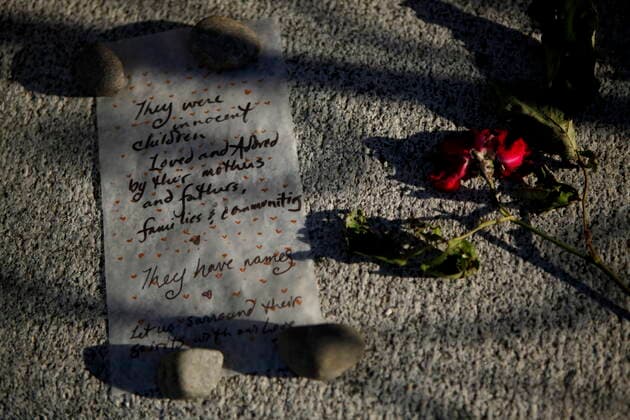 They were
innocent
children
Loved and Adored
by their mothers
and fathers,
families & communities
They have names
Let us surround their
spirits with our Love